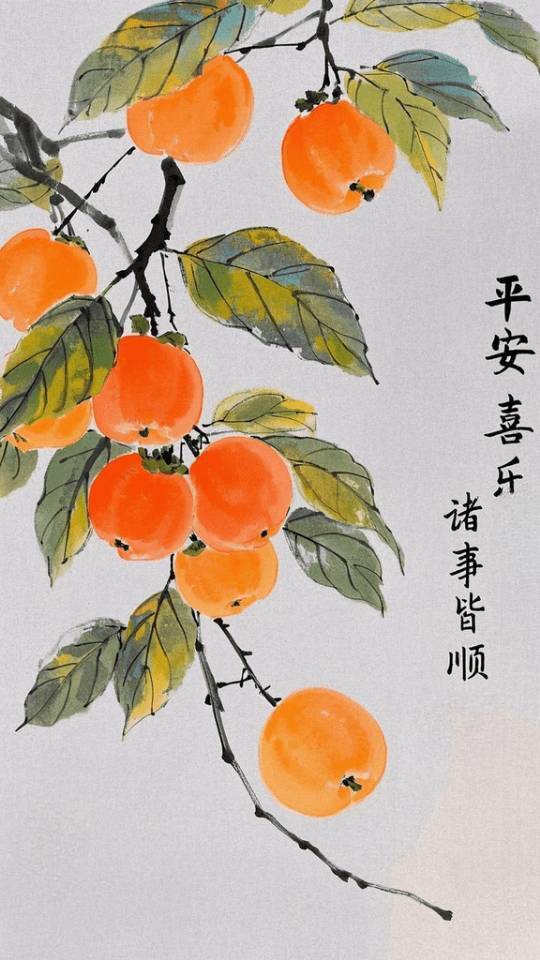 平安喜乐
诸事皆顺